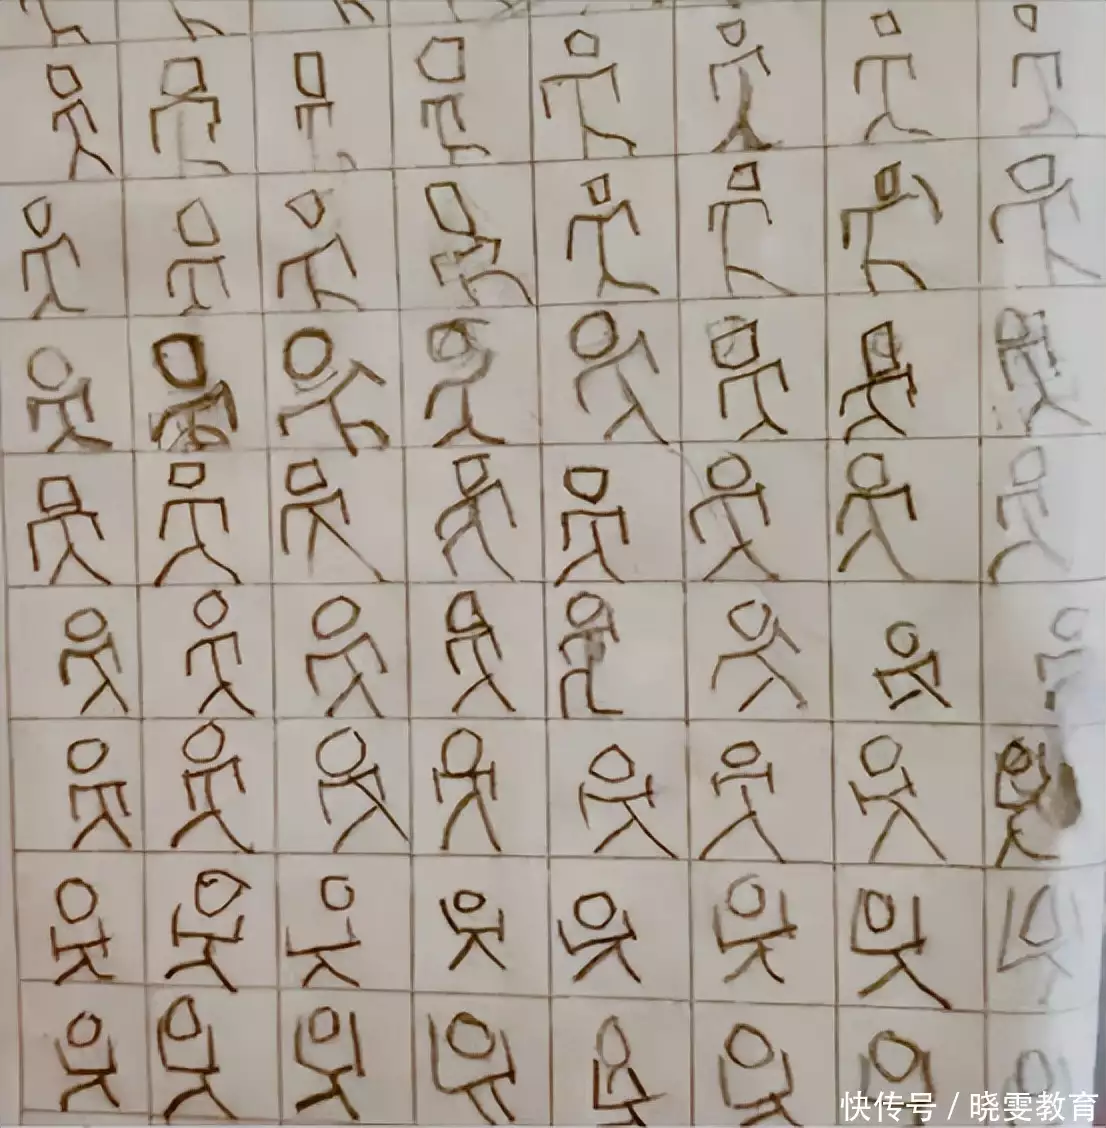 快传号 / 晓雯教育